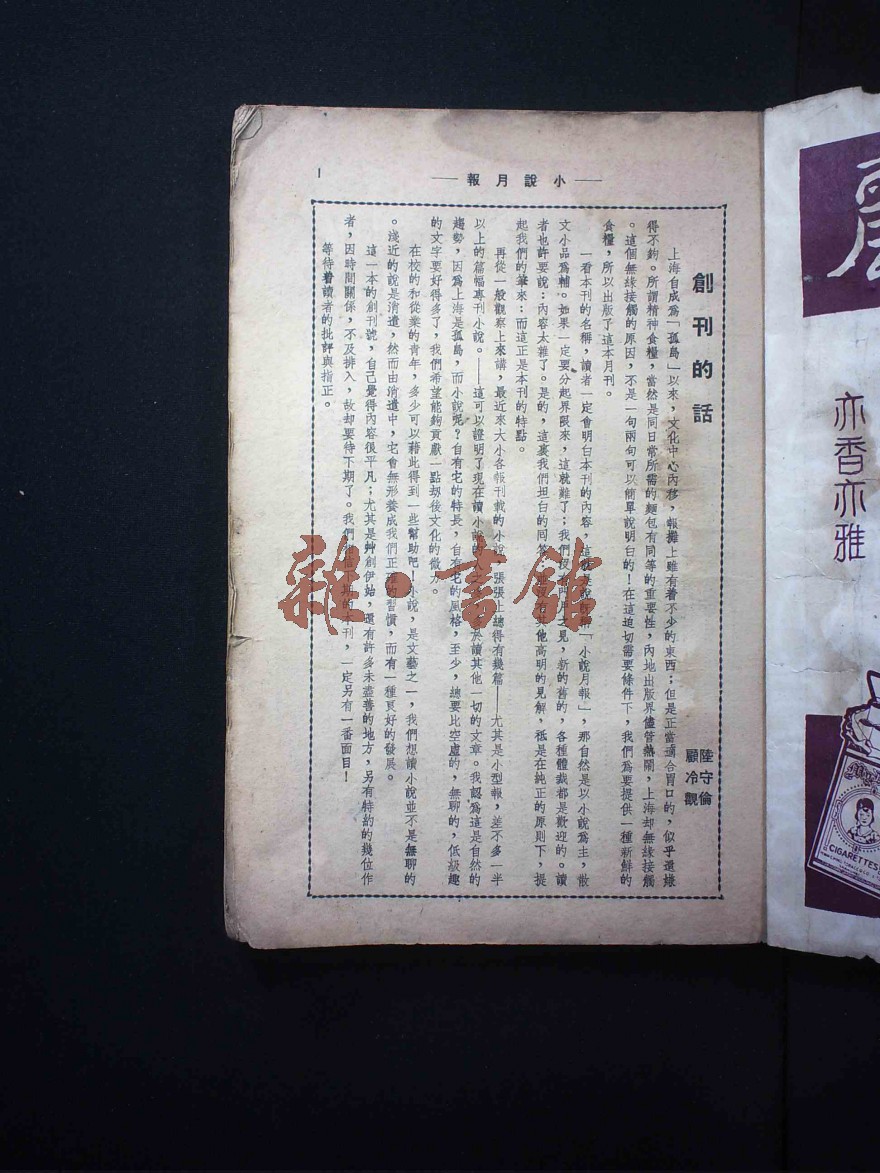 報月說小
1
創刊的話
陸守倫
顧冷觀
上海自成爲「孤島」以來，文化中心內移，報攤上雖有着不少的東西；但是正當適合胃口的，似乎還嫌
得不夠。所謂精神食糧，當然是同日常所需的麵包有同等的重要性，內地出版界儘管熱鬧，上海却無緣接觸
。這個無緣接觸的原因，不是一句兩句可以簡單說明白的！在這迫切需要條件下，我們爲要提供一種新鮮的
食糧，所以出版了這本月刊。
一看本刊的名稱，讀者一定會明白本刊的內容，「小說月報」，那自然是以小說爲主，散
文小品爲輔。如果一定要分起界限來，這就難了；我們沒有門戶之見，新的舊的，各種體裁都是歡迎的。讀
者也許要說：內容太雜了。是的，這裏我們坦白的回答：並沒有其他高明的見解，祇是在純正的原則下，提
起我們的筆來：而這正是本刊的特點。
再從一般觀察上來講，最近來大小各報刊載的小說，張張上總得有幾篇——尤其是小型報，差不多一半
以上的篇幅專刊小說。——這可以證明了現在讀小說的人之多，於讀其他一切的文章。我認爲這是自然的
趨勢，因爲上海是孤島，而小說呢？自有它的特長，自有它的風格，至少，總要比空虛的，無聊的，低級趣
的文字要好得多了，我們希望能夠貢獻一點刼後文化的微力。
在校的和從業的青年，多少可以藉此得到一些幫助吧！小說，是文藝之一，我們想讀小說並不是無聊的
。淺近的說是消遣，然而由消遣中，它會無形養成我們正確的習慣，而有一種更好的發展。
這一本的創刊號，自己覺得內容很平凡；尤其是艸創伊始，還有許多未盡善的地方，另有特約的幾位作
者，因時間關係，不及排入，故却要待下期了。我們相信下期的本刊，一定另有一番面目！
等待着讀者的批評與指正。
雜·書館
亦香亦雅
CIGARETTES